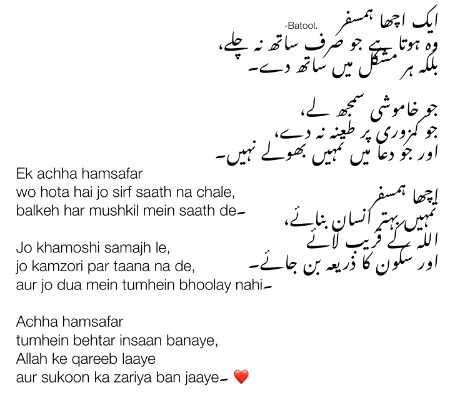 -Batool.
ایک اچھا ہمسفر
وہ ہوتا ہے جو صرف ساتھ نہ چلے،
بلکہ ہر مشکل میں ساتھ دے۔
جو خاموشی سمجھ لے،
جو کمزوری پر طعنہ نہ دے،
اور جو دعا میں تمہیں بھولے نہیں۔
اچھا ہمسفر
تمہیں بہتر انسان بنائے،
اللہ کے قریب لائے
اور سکون کا ذریعہ بن جائے۔
Ek achha hamsafar
wo hota hai jo sirf saath na chale,
balkeh har mushkil mein saath de۔
Jo khamoshi samajh le,
jo kamzori par taana na de,
aur jo dua mein tumhein bhoolay nahi۔
Achha hamsafar
tumhein behtar insaan banaye,
Allah ke qareeb laaye
aur sukoon ka zariya ban jaaye۔ ❤️